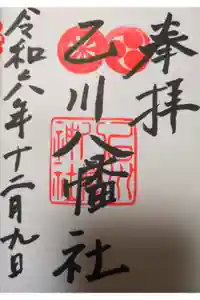 奉拝
乙川八幡社
令和六年十二月九日